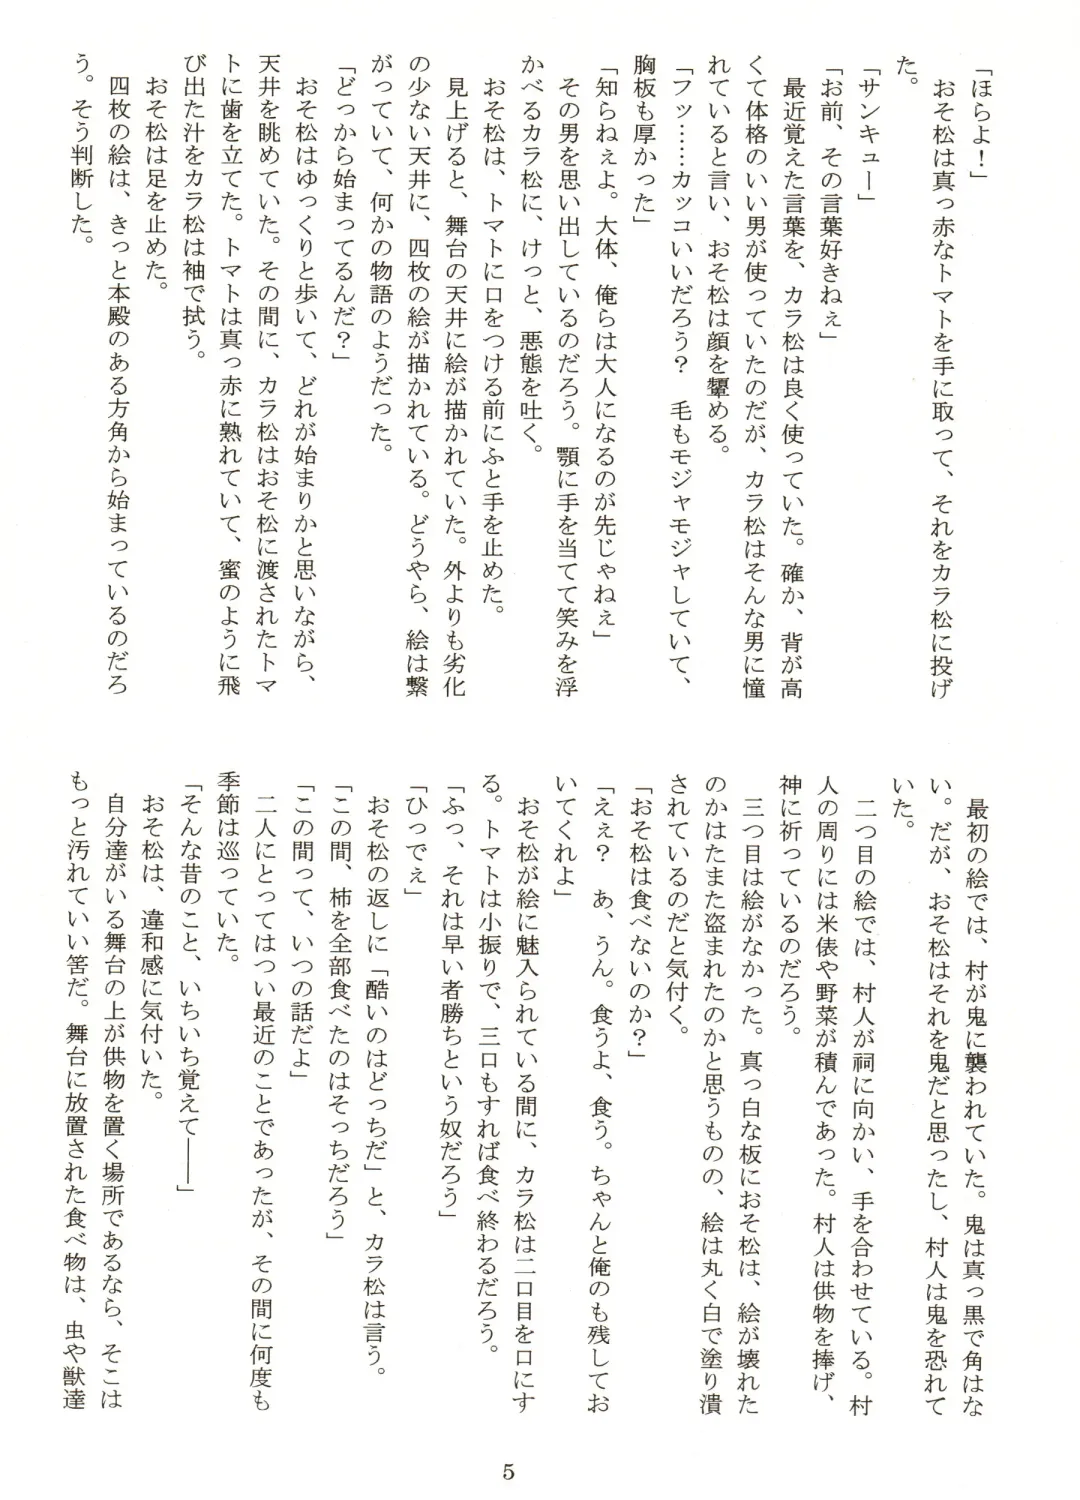 「ほらよ！」
　おそ松は真っ赤なトマトを手に取って、それをカラ松に投げ
た。
「サンキュー」
「お前、その言葉好きねぇ」
　最近覚えた言葉を、カラ松は良く使っていた。確か、背が高
くて体格のいい男が使っていたのだが、カラ松はそんな男に憧
れていると言い、おそ松は顔を顰める。
「フッ……カッコいいだろう？　毛もモジャモジャしていて、
胸板も厚かった」
「知らねぇよ。大体、俺らは大人になるのが先じゃねぇ」
　その男を思い出しているのだろう。顎に手を当てて笑みを浮
かべるカラ松に、けっと、悪態を吐く。
　おそ松は、トマトに口をつける前にふと手を止めた。
　見上げると、舞台の天井に絵が描かれていた。外よりも劣化
の少ない天井に、四枚の絵が描かれている。どうやら、絵は繋
がっていて、何かの物語のようだった。
「どっから始まってるんだ？」
　おそ松はゆっくりと歩いて、どれが始まりかと思いながら、
天井を眺めていた。その間に、カラ松はおそ松に渡されたトマ
トに歯を立てた。トマトは真っ赤に熟れていて、蜜のように飛
び出た汁をカラ松は袖で拭う。
　おそ松は足を止めた。
　四枚の絵は、きっと本殿のある方角から始まっているのだろ
う。そう判断した。
　最初の絵では、村が鬼に襲われていた。鬼は真っ黒で角はな
い。だが、おそ松はそれを鬼だと思ったし、村人は鬼を恐れて
いた。
　二つ目の絵では、村人が祠に向かい、手を合わせている。村
人の周りには米俵や野菜が積んであった。村人は供物を捧げ、
神に祈っているのだろう。
　三つ目は絵がなかった。真っ白な板におそ松は、絵が壊れた
のかはたまた盗まれたのかと思うものの、絵は丸く白で塗り潰
されているのだと気付く。
「おそ松は食べないのか？」
「えぇ？　あ、うん。食うよ、食う。ちゃんと俺のも残してお
いてくれよ」
　おそ松が絵に魅入られている間に、カラ松は二口目を口にす
る。トマトは小振りで、三口もすれば食べ終わるだろう。
「ふっ、それは早い者勝ちという奴だろう」
「ひっでぇ」
　おそ松の返しに「酷いのはどっちだ」と、カラ松は言う。
「この間、柿を全部食べたのはそっちだろう」
「この間って、いつの話だよ」
　二人にとってはつい最近のことであったが、その間に何度も
季節は巡っていた。
「そんな昔のこと、いちいち覚えて――」
　おそ松は、違和感に気付いた。
　自分達がいる舞台の上が供物を置く場所であるなら、そこは
もっと汚れていい筈だ。舞台に放置された食べ物は、虫や獣達
5